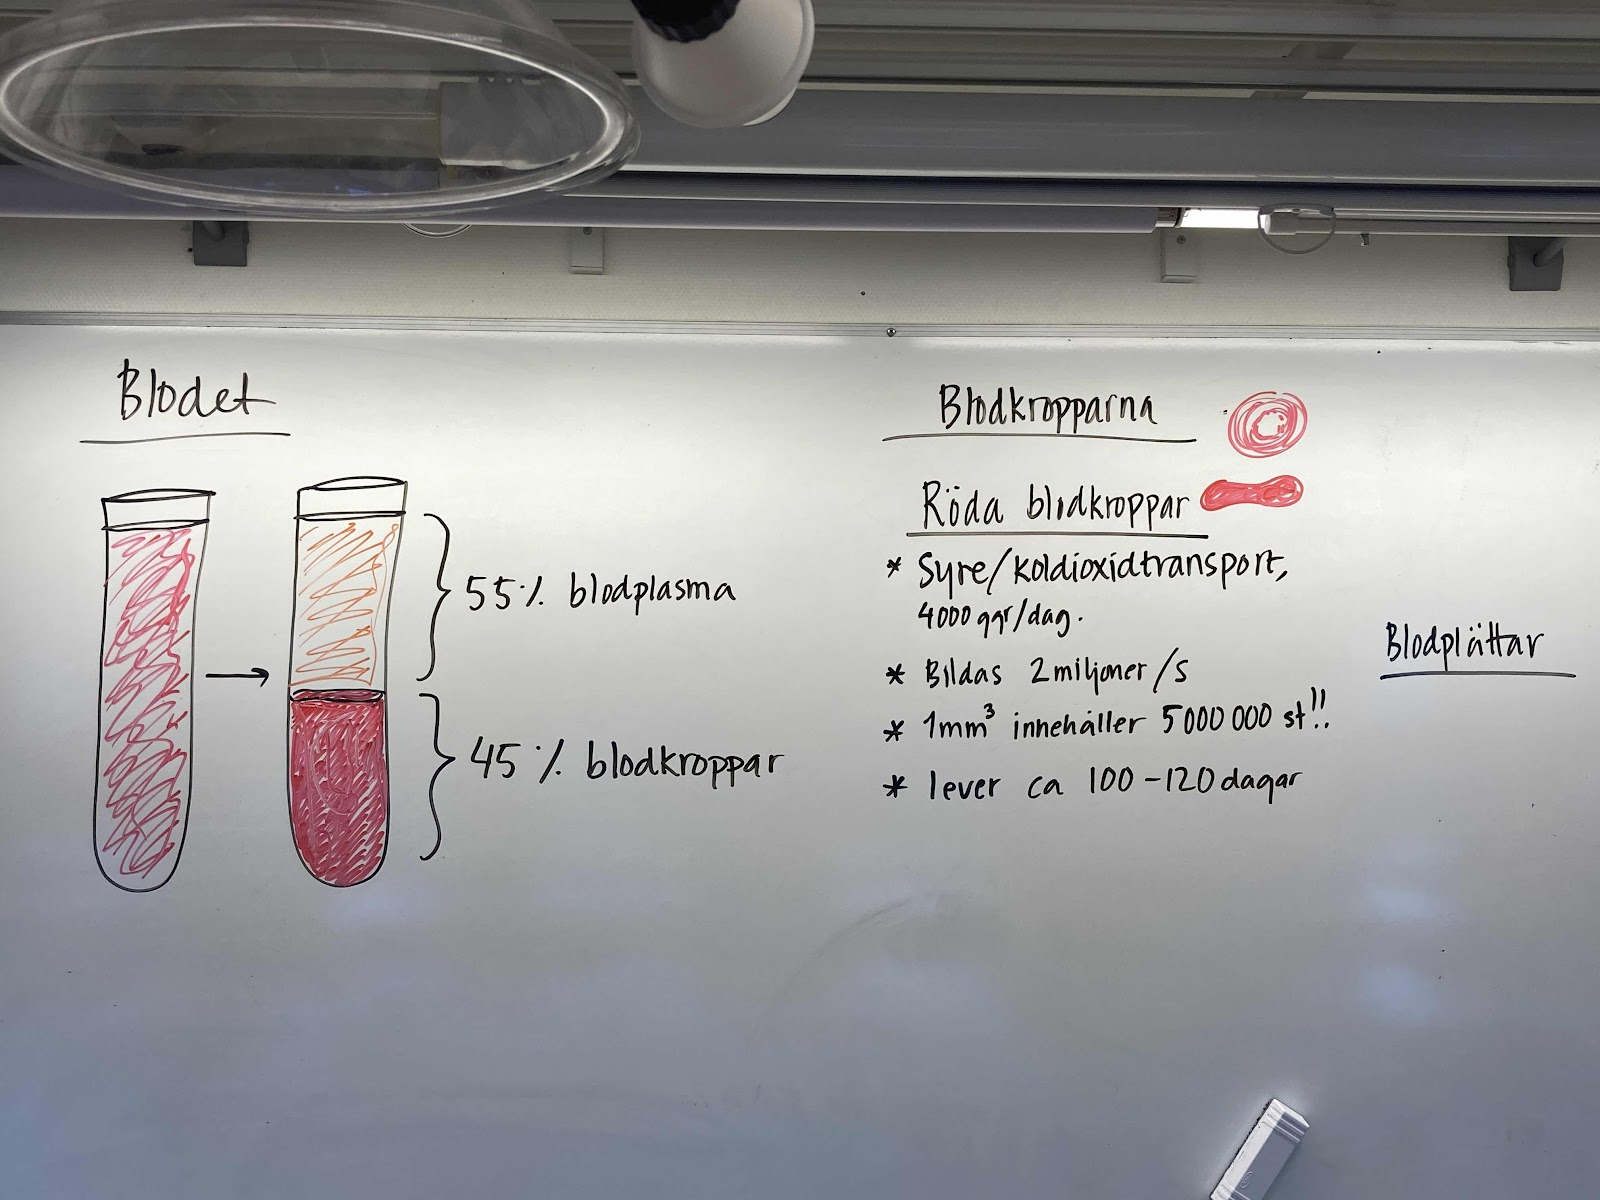 Blodet
55% blodplasma
45% blodkroppar
Blodkropparna
Röda blodkroppar
* Syre/koldioxidtransport,
4000 ggr/dag.
* Bildas 2 miljoner/s
* 1mm³ innehåller 5000 000 st!!
* lever ca 100-120 dagar
Blodplättar